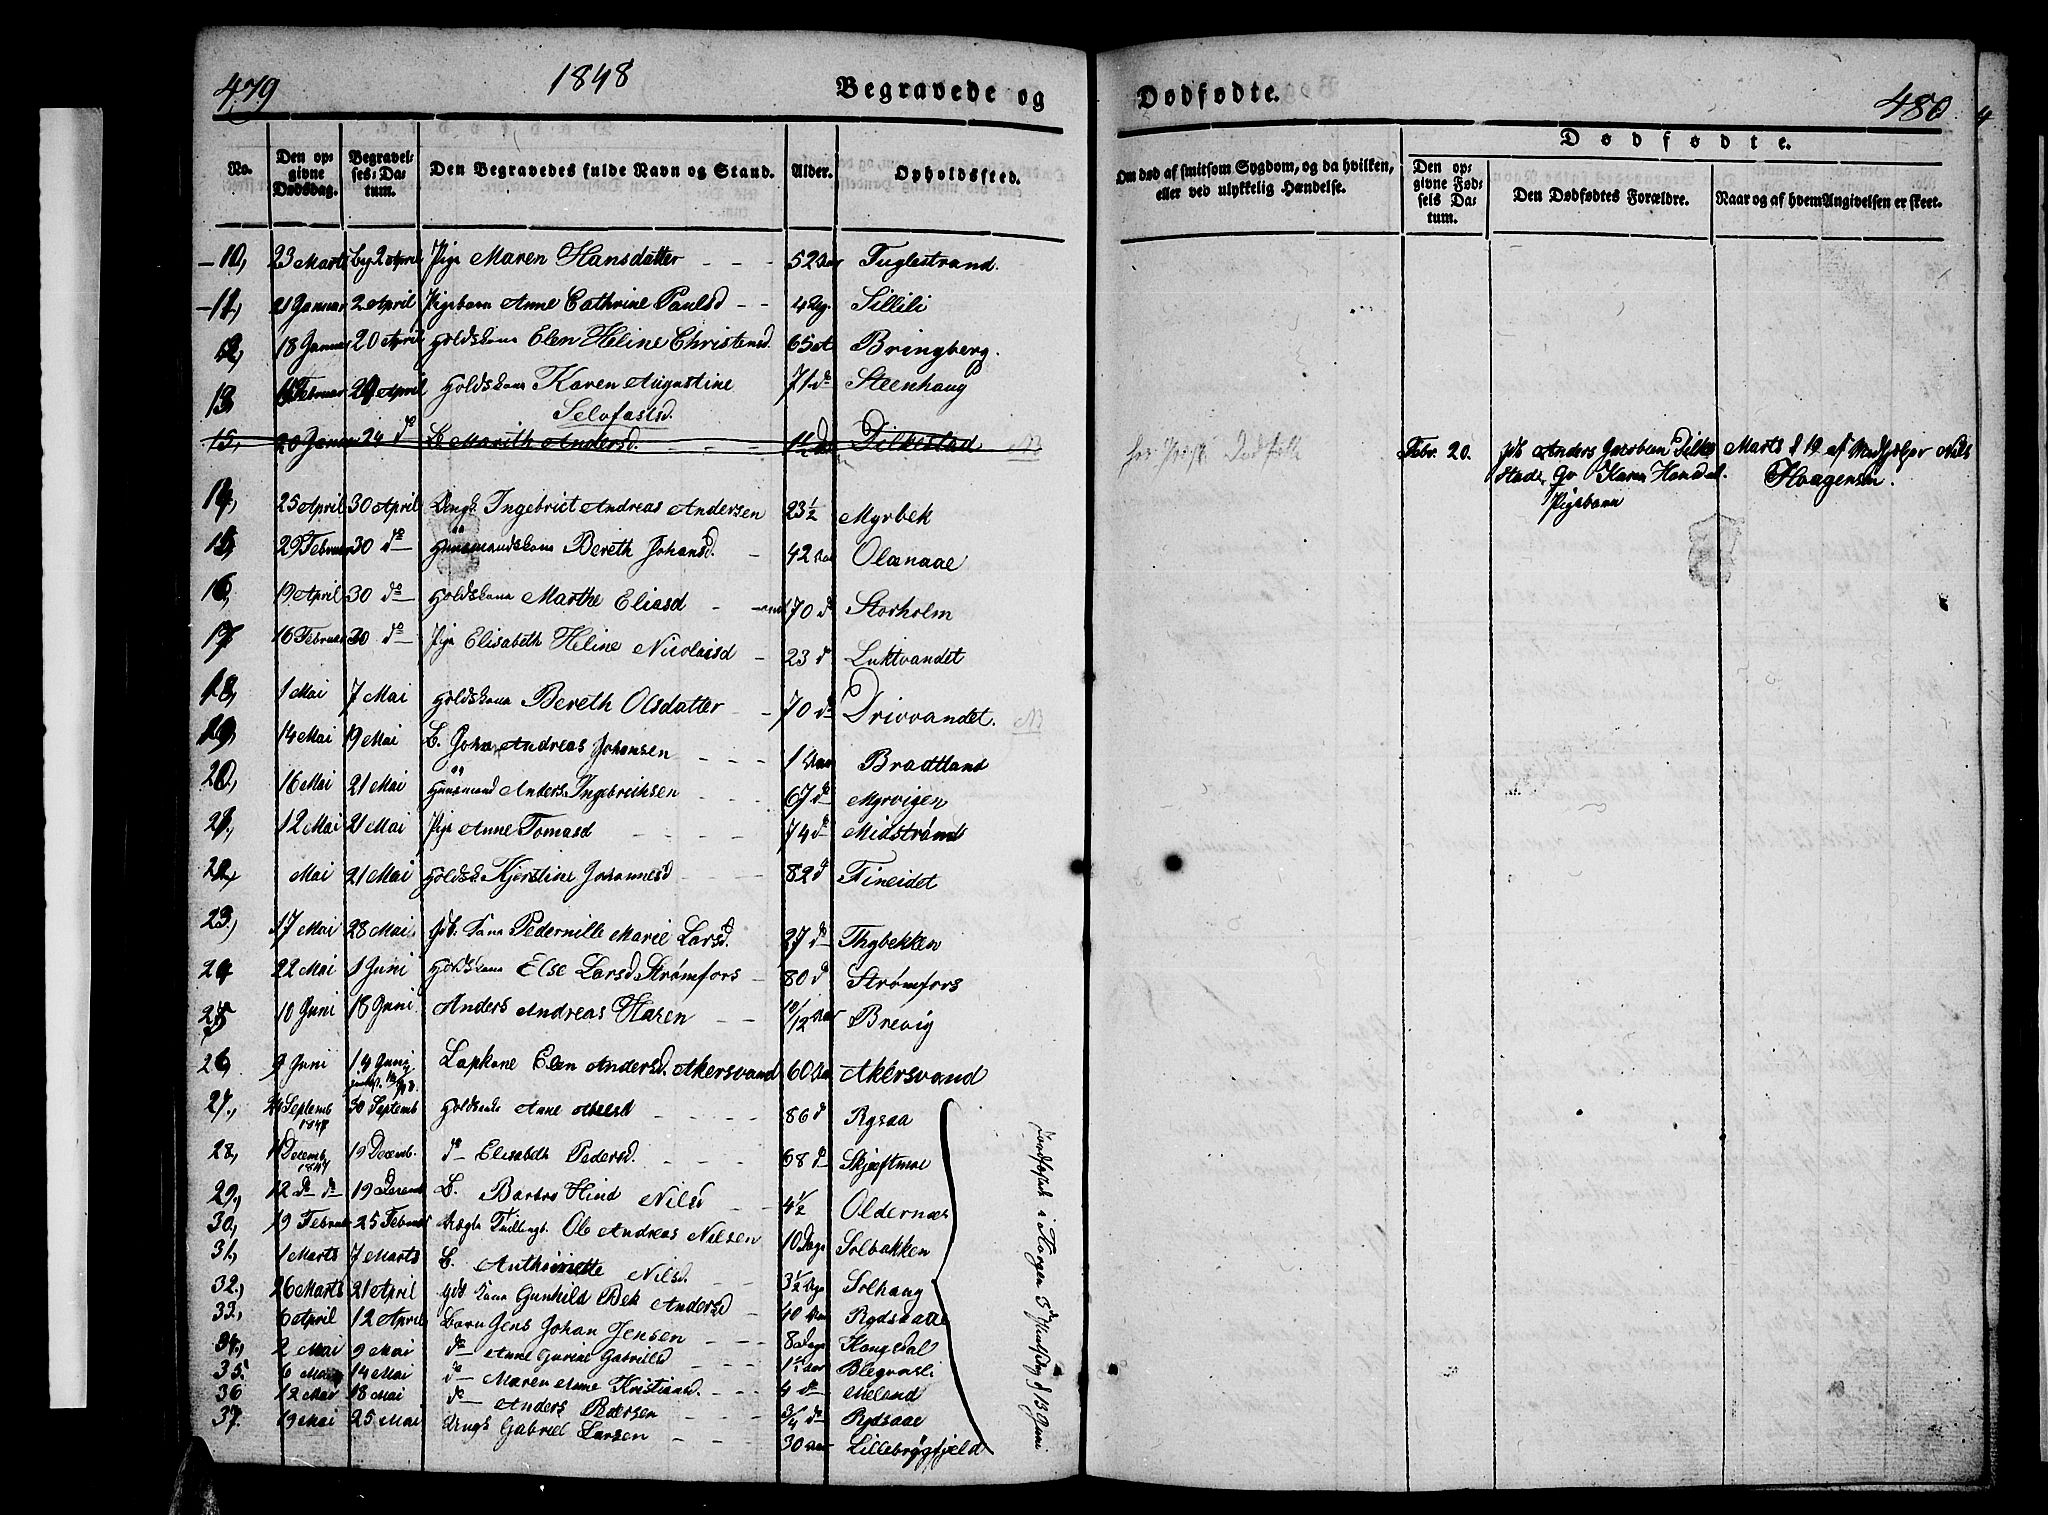 479
1848
Begravede og
No.
Den opgivne Dødsdag.
Begravelses-Datum.
Den Begravedes fulde Navn og Stand.
Alder.
Opholdssted.
10, 23 Marts 2 April Pige Maren Hansdatter 52 Aar Fuglestrand.
11, 21 Januar 2 April Pigebarn Anne Cathrine Paulsd 4 Sillili
12, 18 Januar 20 April Holdskone Elen Heline Christensd. 65 Bringberg.
13 Februar 24 April Holdskone Karen Augustine 71 d Steenhaug
Selofastsd.
15, 20 Januar 24 d B. Marith Andersd. Dilkestad NB
14, 25 April 30 April Dreng Ingebrict Andreas Andersen 23½ Myrbek
15, 29 Februar 30 d Huusmandskone Bereth Johansd. 42 Aar Olanaae
16, 19 April 30 d Holdskone Marthe Eliasd 70 d Storholm
17 16 Februar 30 d Pige Elisabeth Heline Nicolaisd 23 d Luktvandet
18, 1 Mai 7 Mai Holdskone Bereth Olsdatter 70 d Drivvandet. NB
19, 14 Mai 19 Mai B. Johan Andreas Johansen 1 Aar Bradtland
20, 16 Mai 21 Mai Huusmand Anders Ingebrichsen 67 d Myrvigen
21, 12 Mai 21 Mai Pige Anne Tomasd 74 d Midstrand
22, Mai 21 Mai Holdsk. Kjerstine Johannesd 82 d Fineidet
23, 17 Mai 28 Mai Gdb. Kone Pedernille Marie Larsd. 27 d Thybekken
24 22 Mai 1 Juni Holdskone Else Larsd Strømfors 80 d Strømfors
25 10 Juni 18 Juni Anders Andreas Hasen 10/12 Aar Brevig
26, 9 Juni 19 Juni Lapkone Elen Andersd. Akersvand 60 Aar Akersvand
27, 24 Septemb 1847 30 Septemb Holdsk. Anne Abelsd 86 d Rysaa
28, 11 Decemb 1847 19 Decemb. d Elisabeth Pedersd. 68 d Skjæftmoe
29, 12 d d 19 Decemb B. Barbro Hind Nilsd 4½ Oldernæs
30, 19 Februar 25 Februar Ole Andreas Nilsen 10 Dage Solbakken
31, 1 Marts 7 Marts B. Anthonette Nilsd. 3½ Solhaug
32, 26 Marts 21 April Gdb Kone Gunhild Bek Andersd 40 Aar Rydsaae
33, 6 April 12 April Barn Jens Johan Jensen 8 Dage Kongsdal
34, 2 Mai 9 Mai d Anne Gurine Gabrielsd 1½ Aar
35. 6 Mai 14 Mai d Maren Anne Kristiansd. 4 d Meland
36 12 Mai 18 Mai d Anders Pedersen 3/4 d Rydsaae
37. 19 Mai 25 Mai Dreng Gabriel Larsen 30 Aar Lillebrygfjeld
Jordfæstede i Korgen 3 13 Juni
Dødfødte.
480
Om død af smitsom Sygdom, og da hvilken,
eller ved ulykkelig Hændelse.
Dødfødte.
Den opgivne Fødsels Datum.
Den Dødfødtes Forældre.
Naar og af hvem Angivelsen er skeet.
Febr. 20. Gdb Anders Jacobsen Dilke- Marts d 19 af Medhjelper Nils
stad, Qv Karen Hansd. Haagensen.
Pigebarn